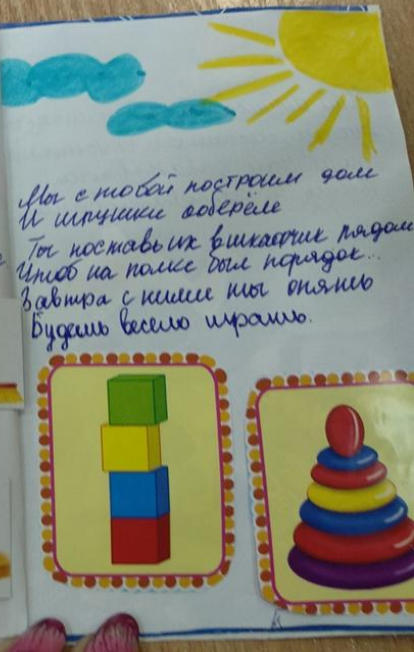 Мы с тобой построим дом
И игрушки соберём
Ты поставь их в шкафчик рядом
Чтоб на полке был порядок..
Завтра с ними ты опять
Будешь весело играть.